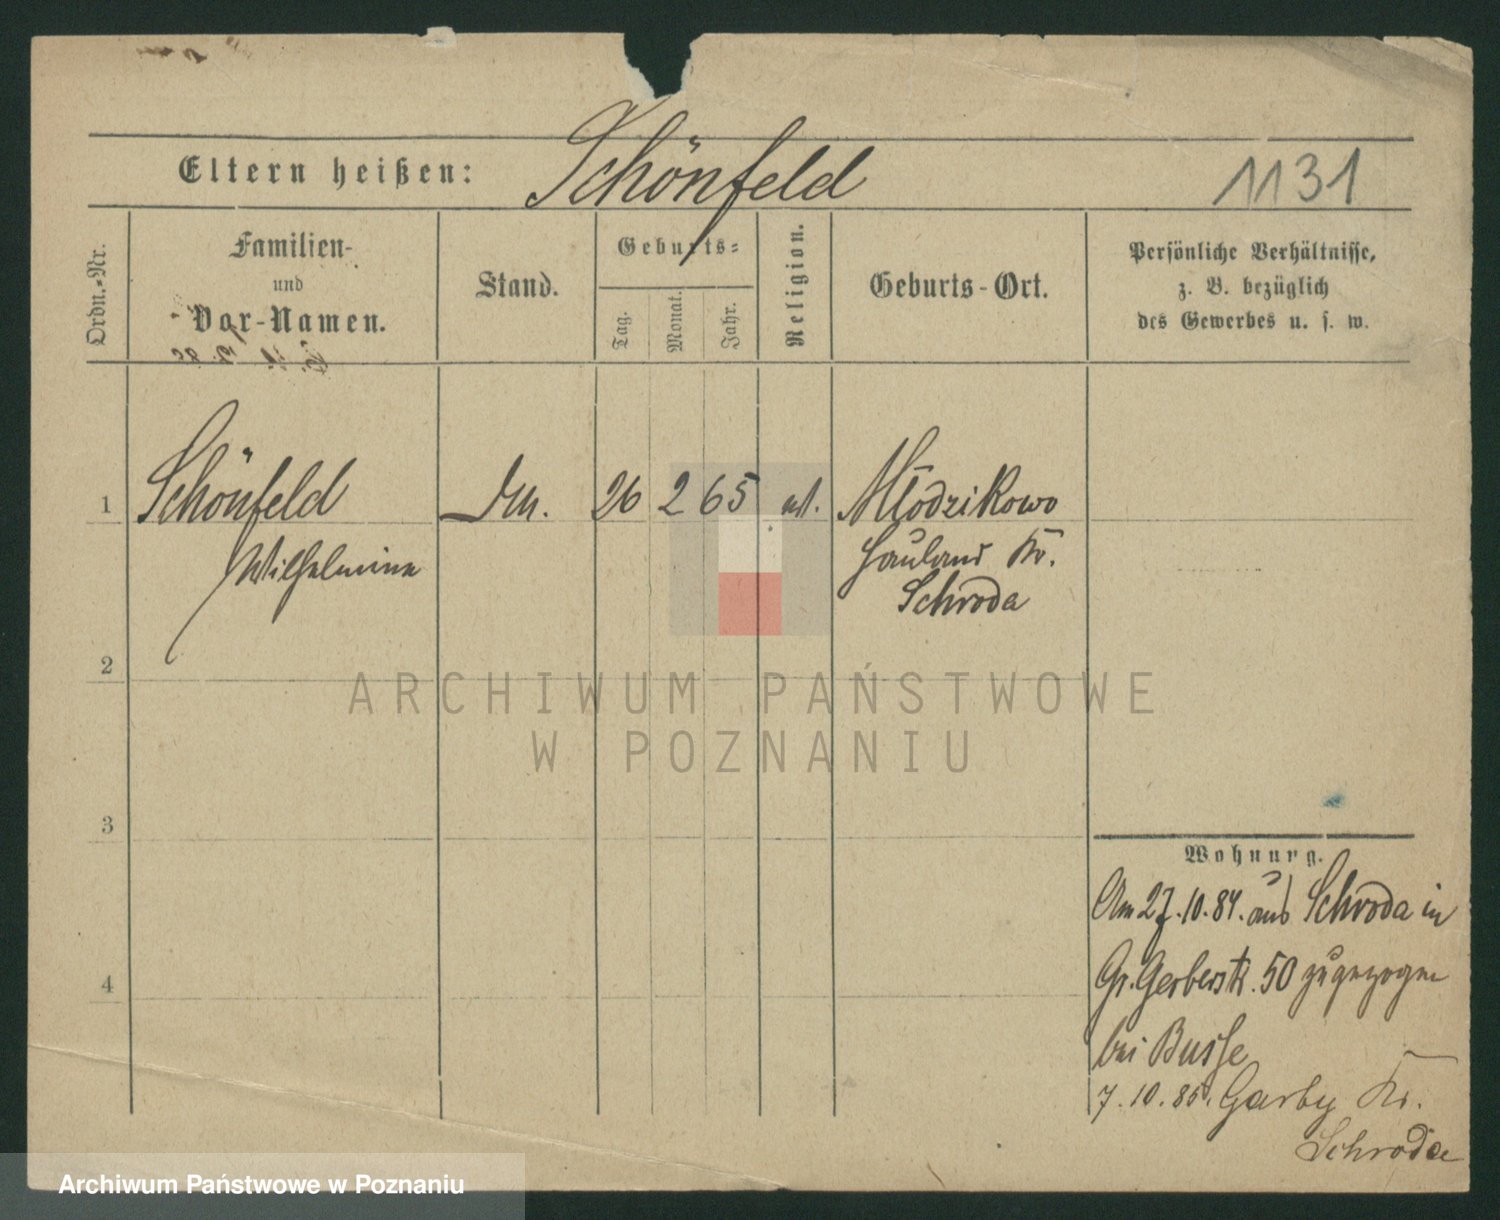 Eltern heißen: Schönfeld 1131
Ordn.-Nr.
Familien-
und
Vor-Namen.
Stand.
Geburts-
Tag.
Monat.
Jahr.
Religion.
Geburts-Ort.
Persönliche Verhältnisse,
z. B. bezüglich
des Gewerbes u. s. w.
1 Schönfeld 26 2 65 Młodzikowo
Wilhelmine Hauland Kr.
Schroda
2
ARCHIWUM PAŃSTWOWE
W POZNANIU
3
4
Wohnung.
Am 27.10.84. aus Schroda in
Gr. Gerberstr. 50 zugezogen
bei Busse
7.10.85. Garby Kr.
Schroda
Archiwum Państwowe w Poznaniu